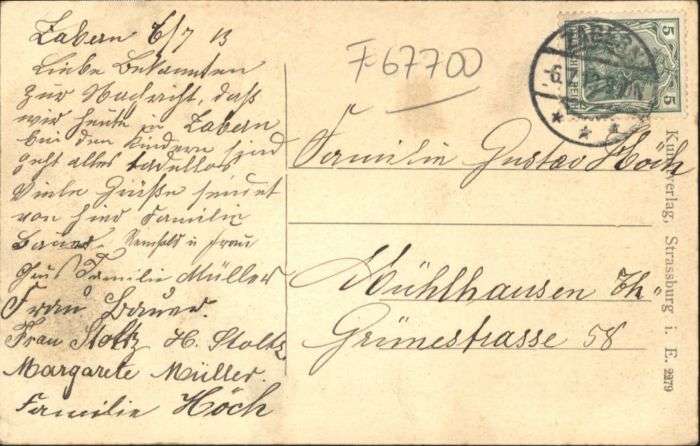 Zabern 6/7 13
Liebe Bekannten
zur Nachricht, daß
wir heute in Zabern
bei den Kindern sind
geht alles tadellos
Viele Grüße sendet
von hier Familie
Bauer. u Frau
Familie Müller
Frau Bauer.
Frau Stoltz H. Stoltz
Margarete Müller.
Familie Höch
F 67700
ZABERN
5
5
Familie Gustav Höch
Mühlhausen Th
Grünestrasse 58
Kunstverlag, Strassburg i. E. 2279